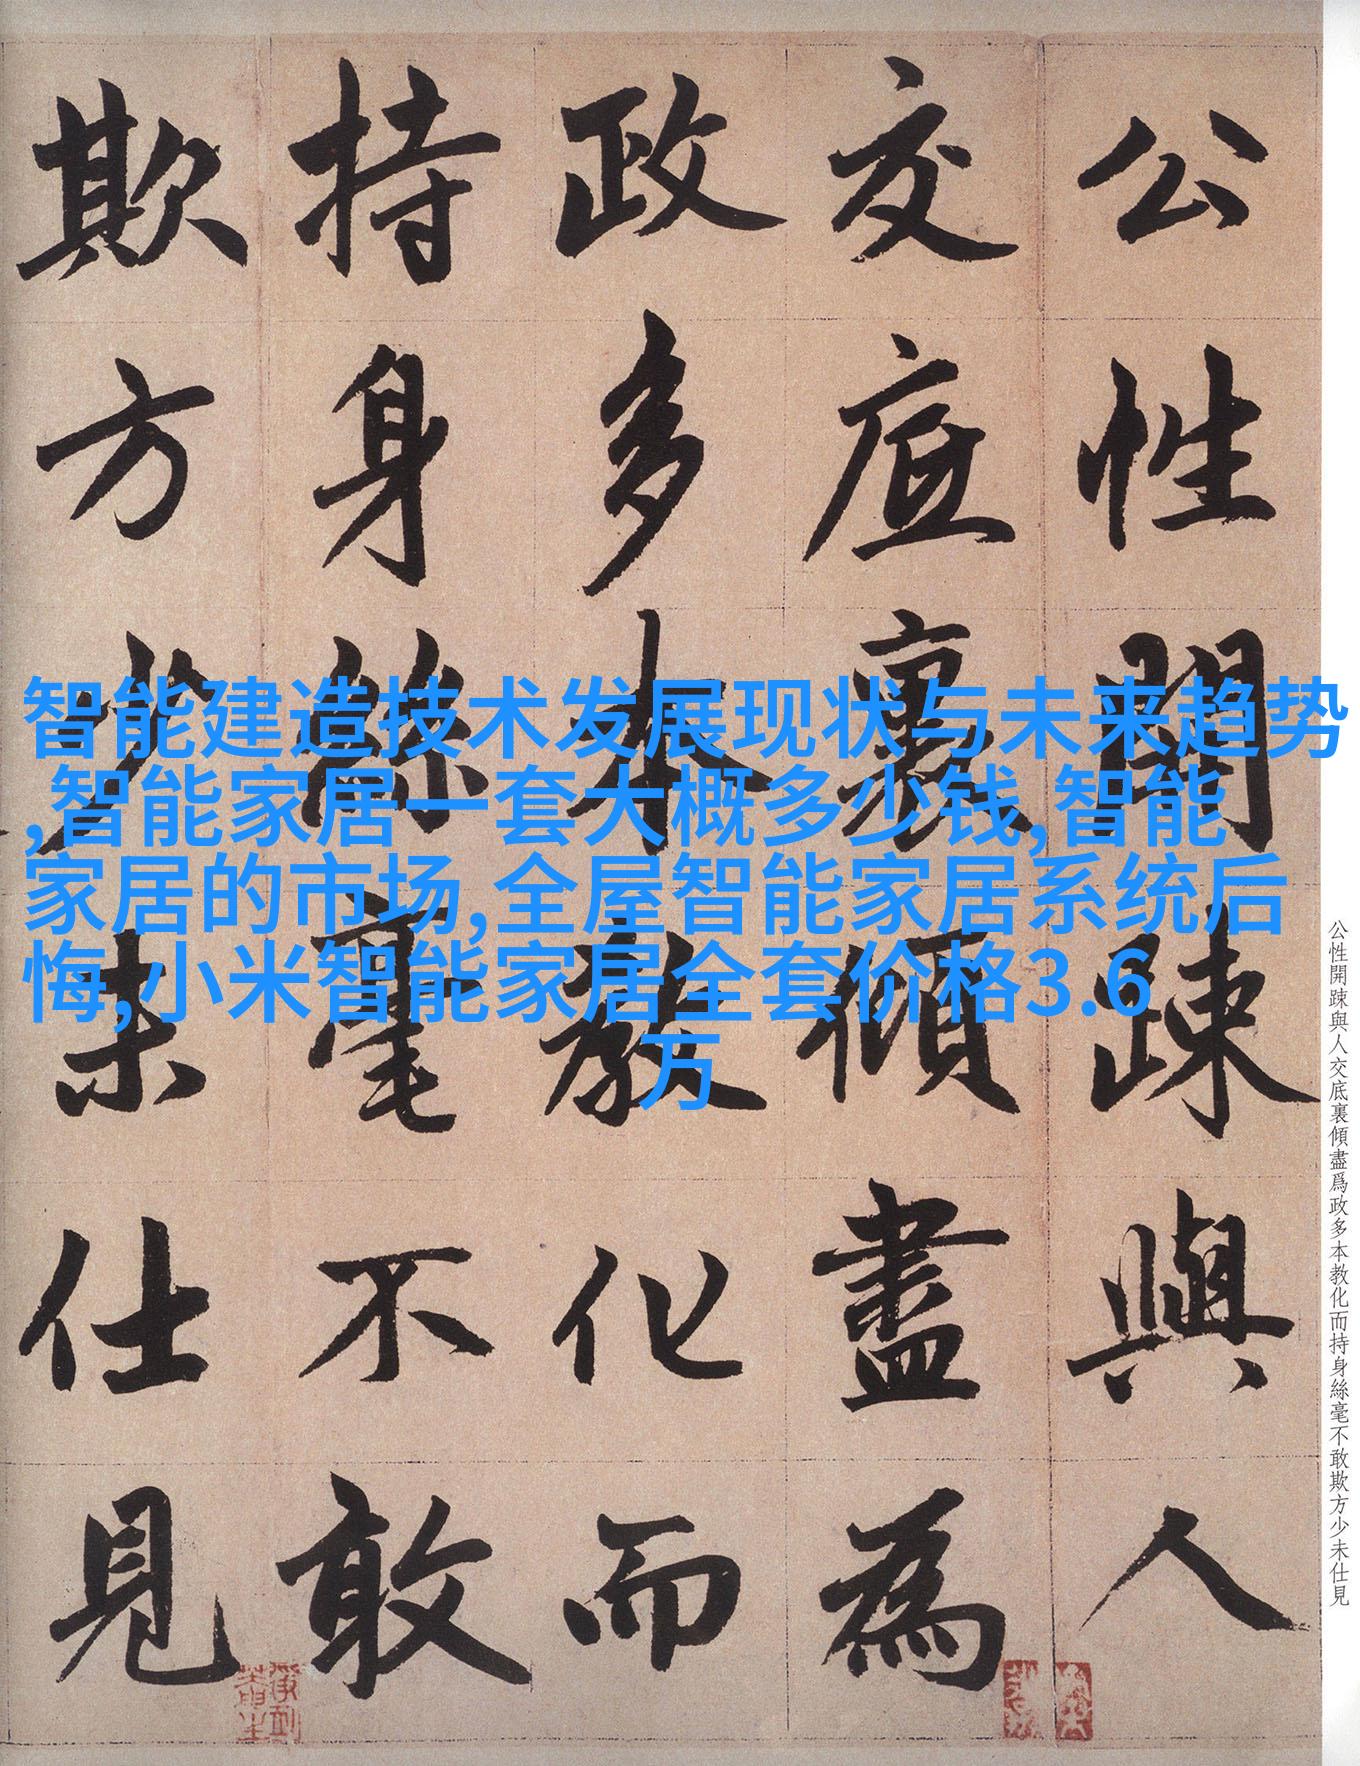 公性開踈與人
交底裏傾盡為
政多本教化而
持身絲毫不敢
欺方少未仕見
智能建造技术发展现状与未来趋势
,智能家居一套大概多少钱,智能
家居的市场,全屋智能家居系统后
悔,小米智能家居全套价格3.6
万
公性開踈與人交底裏傾盡爲政多本教化而持身絲毫不敢欺方少未仕見